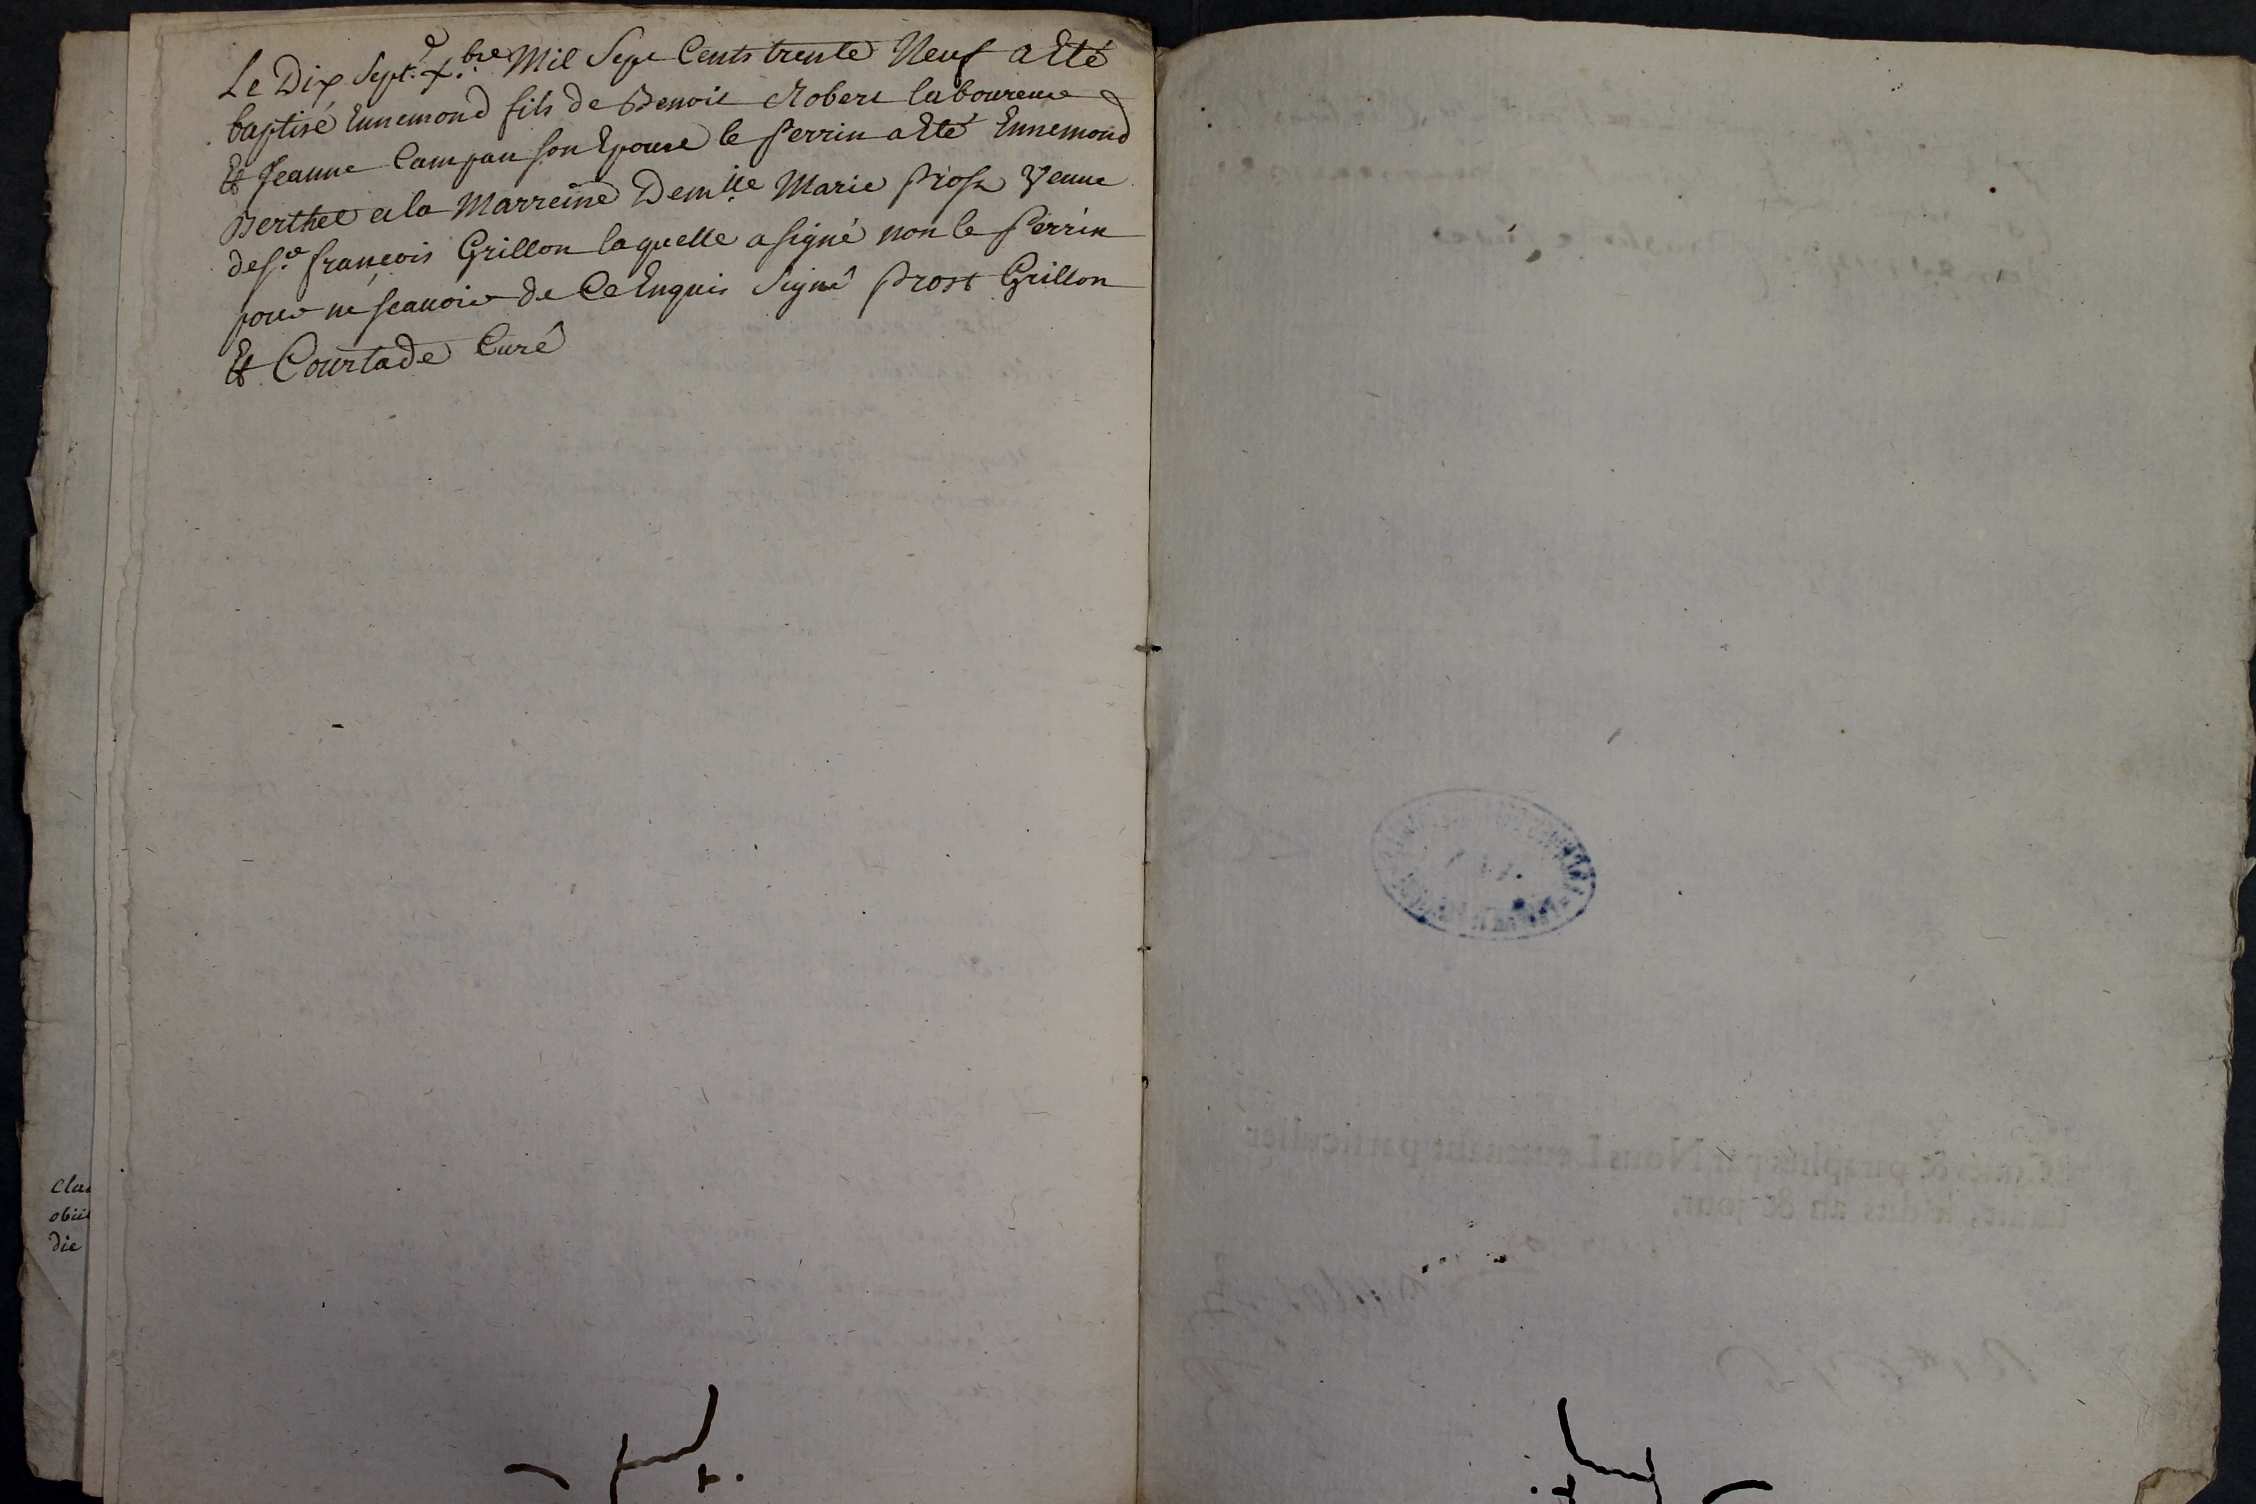 Le Dix Sept.e X.bre Mil Sept Cents trente Neuf a Eté
baptisé Ennemond fils de Benoit Robert laboureur
Et Jeanne Campan son Epouse le Perrin a Eté Ennemond
Berthet et la Marreine Dem.lle Marie Prost Veuve
de S.r françois Grillon laquelle a signé non le Perrin
pour ne scauoir de Ce Enquis Signé Prost Grillon
Et Courtade Curé
Clau
obiit
die